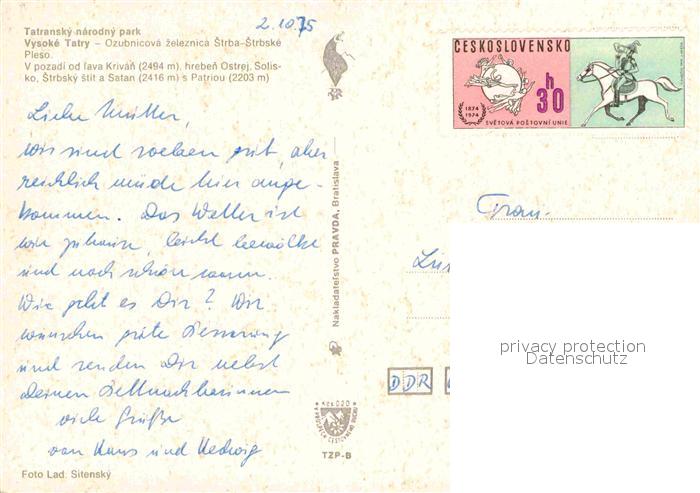 2.10.75
Tatranský národný park
Vysoké Tatry – Ozubnicová železnica Štrba–Štrbské
Pleso.
V pozadí od ľava Kriváň (2494 m), hrebeň Ostrej, Solis-
ko, Štrbský štít a Satan (2416 m) s Patriou (2203 m)
ČESKOSLOVENSKO
h
30
1874
1974
SVĚTOVÁ POŠTOVNÍ UNIE
Liebe Mutter,
wir sind soeben gut, aber
reichlich müde hier ange-
kommen. Das Wetter ist
wie zuhause, leicht bewölkt
und noch schön warm.
Wie geht es Dir? Wir
wünschen gute Besserung
und senden Dir nebst
Deinen Bettnachbarinnen
viele Grüße
von Hans und Hedwig
Nakladateľstvo PRAVDA, Bratislava
Frau
DDR
privacy protection
Datenschutz
TZP-B
Foto Lad. Sitenský